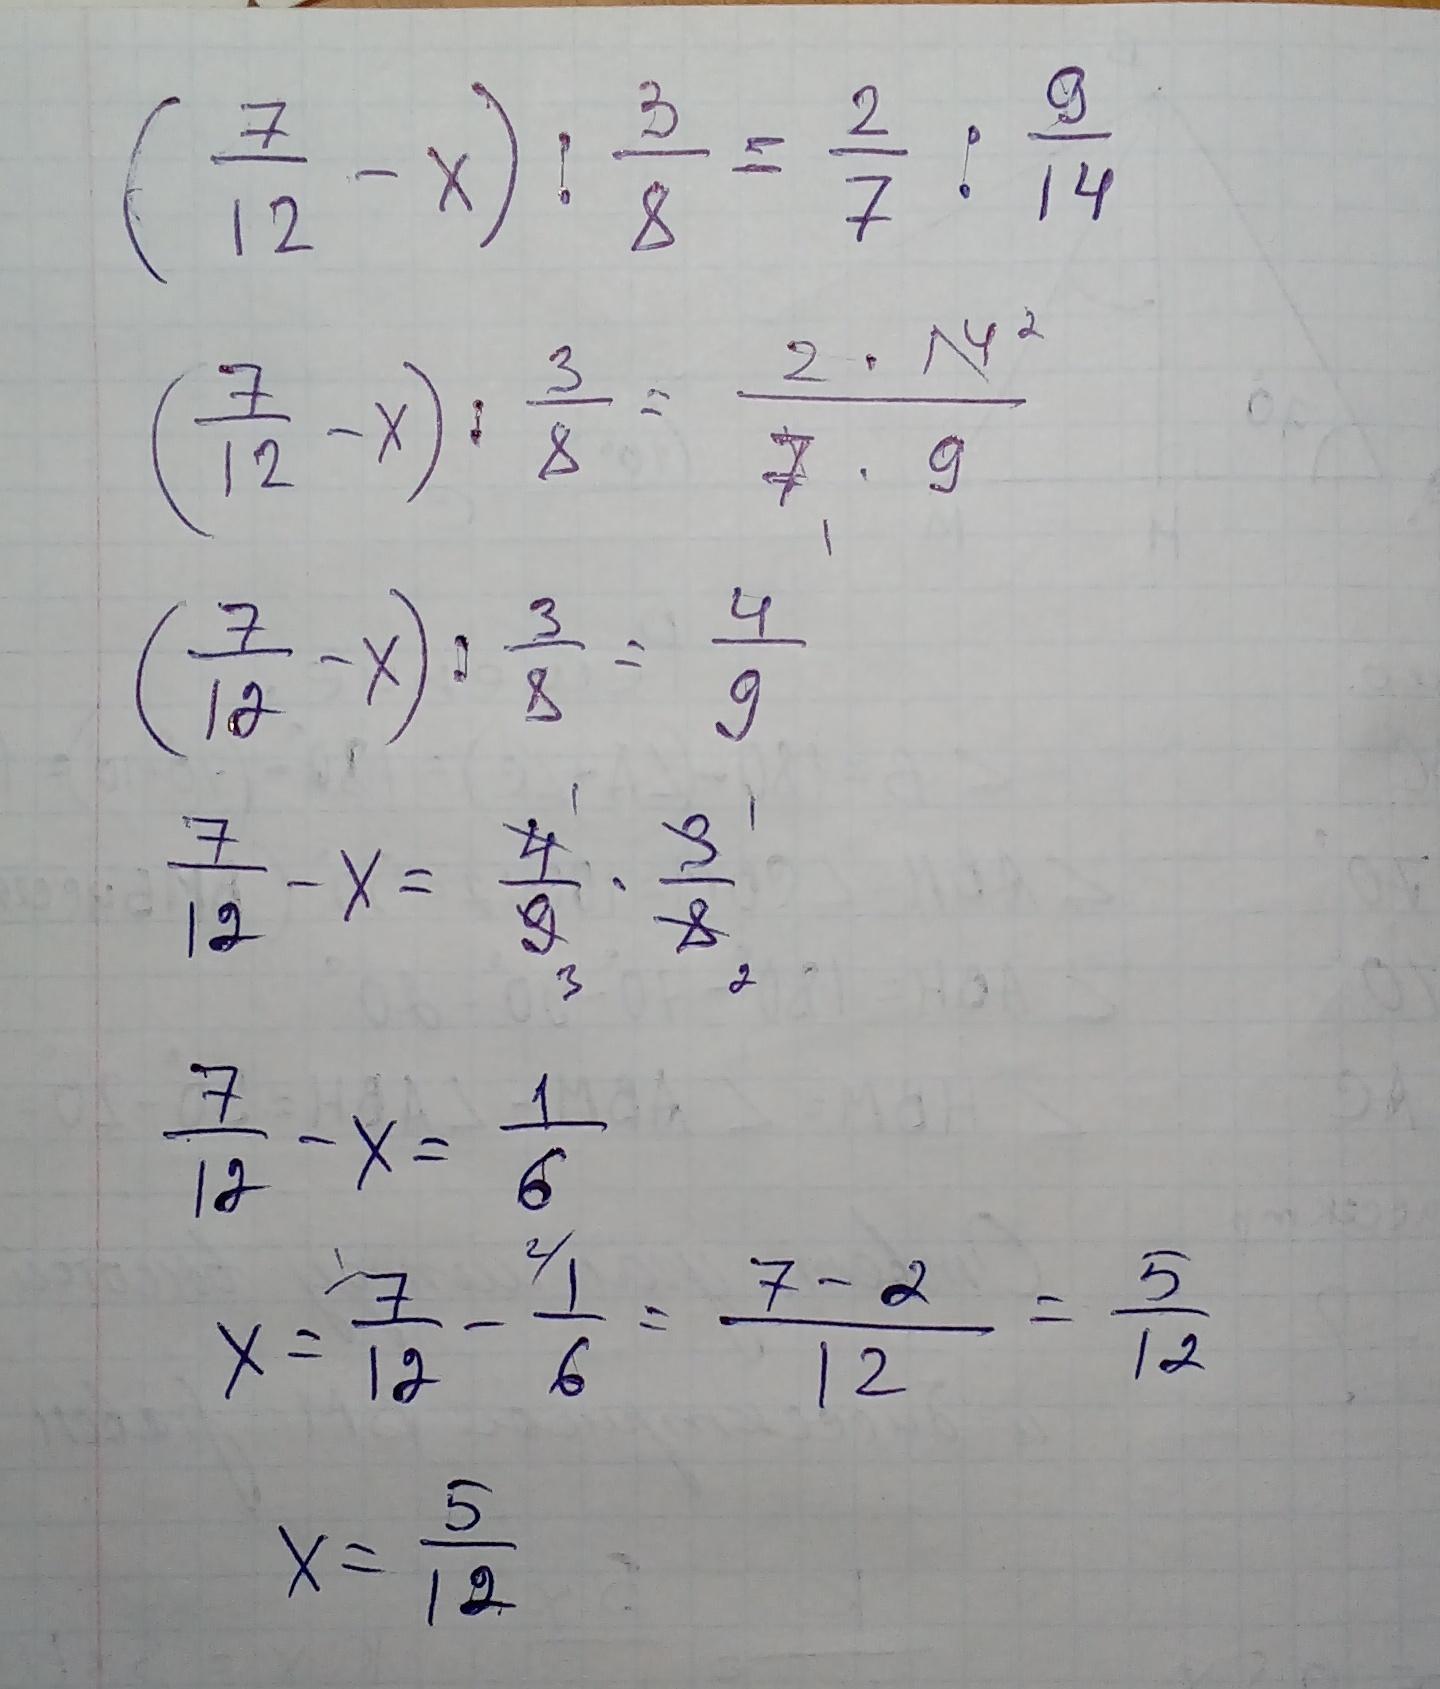 (7/12 - x) : 3/8 = 2/7 : 9/14
(7/12 - x) : 3/8 = (2 · 14²)/(7₁ · 9)
(7/12 - x) : 3/8 = 4/9
7/12 - x = 4¹/9₃ · 3¹/8₂
7/12 - x = 1/6
x = ¹⁄7/12 - ²⁄1/6 = (7 - 2)/12 = 5/12
x = 5/12